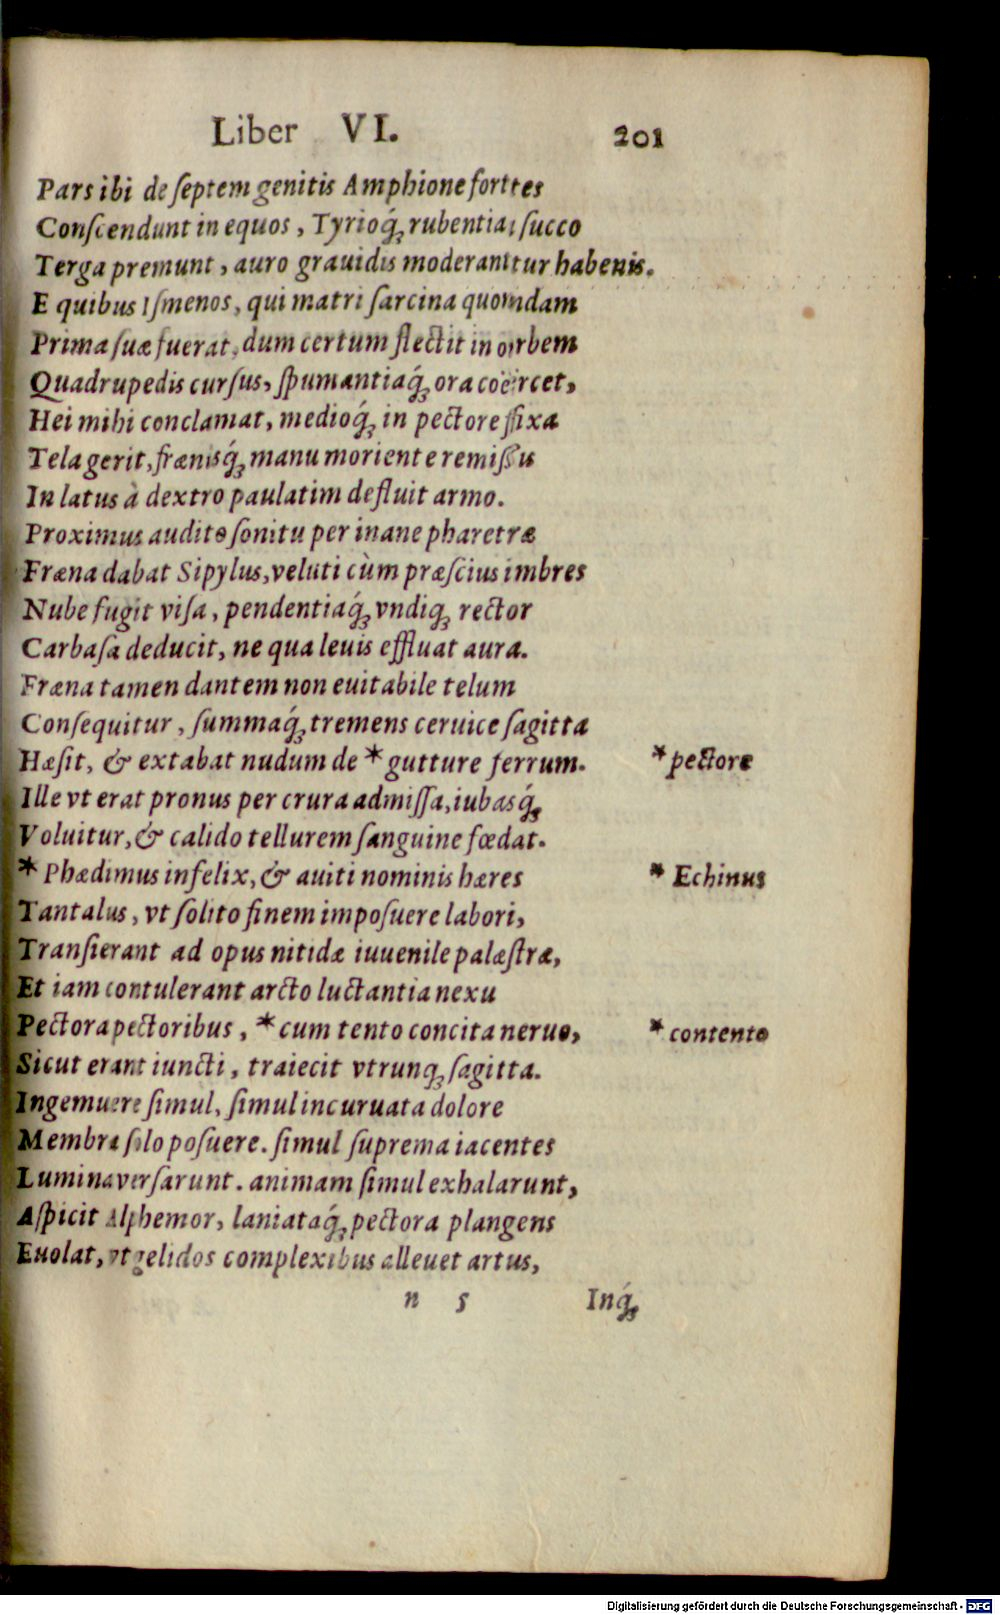 Liber VI. 201
Pars ibi de ſeptem genitis Amphione fortes
Conſcendunt in equos, Tyrioq́ꝫ rubentia ſucco
Terga premunt, auro grauidis moderantur habenis.
E quibus Iſmenos, qui matri ſarcina quondam
Prima ſuæ fuerat, dum certum flectit in orbem
Quadrupedis curſus, ſpumantiaq́ꝫ ora coërcet,
Hei mihi conclamat, medioq́ꝫ in pectore fixa
Tela gerit, frænisq́ꝫ manu moriente remiſſis
In latus à dextro paulatim defluit armo.
Proximus audito ſonitu per inane pharetræ
Fræna dabat Sipylus, veluti cùm præſcius imbres
Nube fugit viſa, pendentiaq́ꝫ vndiqꝫ rector
Carbaſa deducit, ne qua leuis effluat aura.
Fræna tamen dantem non euitabile telum
Conſequitur, ſummaq́ꝫ tremens ceruice ſagitta
Hæſit, & extabat nudum de * gutture ferrum. * pectore
Ille vt erat pronus per crura admiſſa, iubasq́ꝫ
Voluitur, & calido tellurem ſanguine fœdat.
* Phædimus infelix, & auiti nominis hæres * Echinus
Tantalus, vt ſolito finem impoſuere labori,
Tranſierant ad opus nitidæ iuuenile palæſtræ,
Et iam contulerant arcto luctantia nexu
Pectora pectoribus, * cum tento concita neruo, * contento
Sicut erant iuncti, traiecit vtrunqꝫ ſagitta.
Ingemuere ſimul, ſimul incuruata dolore
Membra ſolo poſuere. ſimul ſuprema iacentes
Lumina verſarunt. animam ſimul exhalarunt,
Aſpicit Alphemor, laniataq́ꝫ pectora plangens
Euolat, vt gelidos complexibus alleuet artus,
n 5 Inq́ꝫ
Digitalisierung gefördert durch die Deutsche Forschungsgemeinschaft - DFG